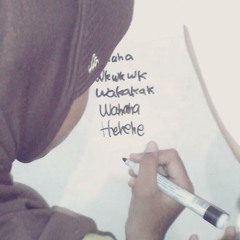 aha
wkwkwk
Wakakak
Wahaha
Hehehe